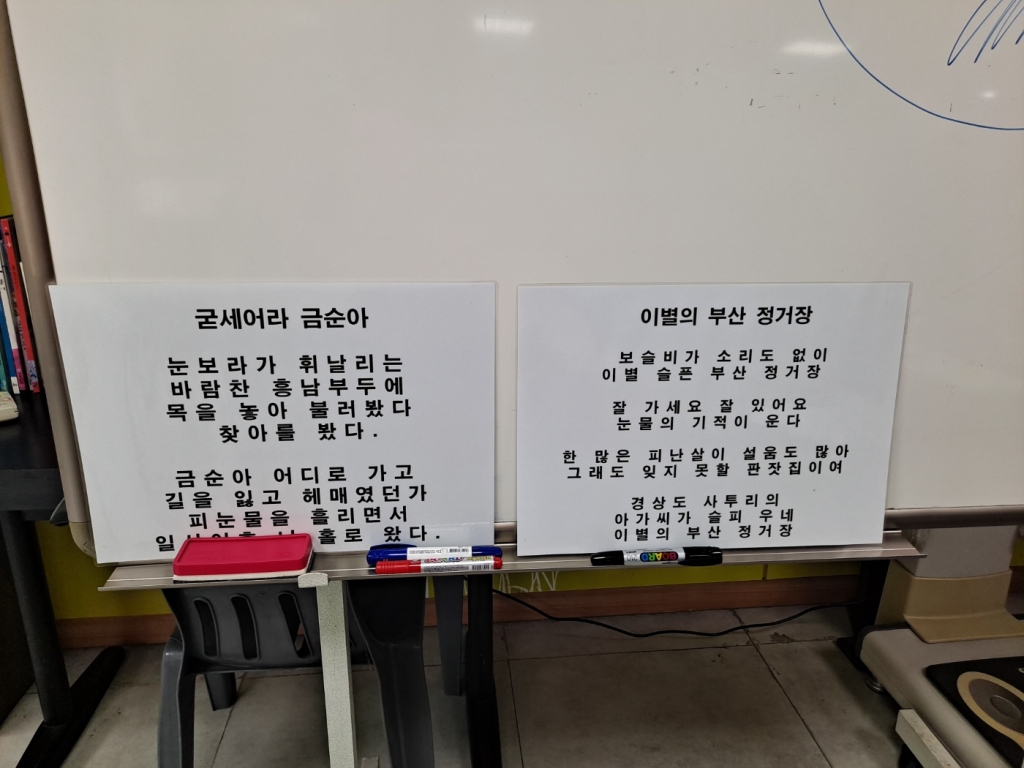 굳세어라 금순아
눈보라가 휘날리는
바람찬 흥남부두에
목을 놓아 불러봤다
찾아를 봤다.
금순아 어디로 가고
길을 잃고 헤매였던가
피눈물을 흘리면서
홀로 왔다.
이별의 부산 정거장
보슬비가 소리도 없이
이별 슬픈 부산 정거장
잘 가세요 잘 있어요
눈물의 기적이 운다
한 많은 피난살이 설움도 많아
그래도 잊지 못할 판잣집이여
경상도 사투리의
아가씨가 슬피 우네
이별의 부산 정거장
BOARD